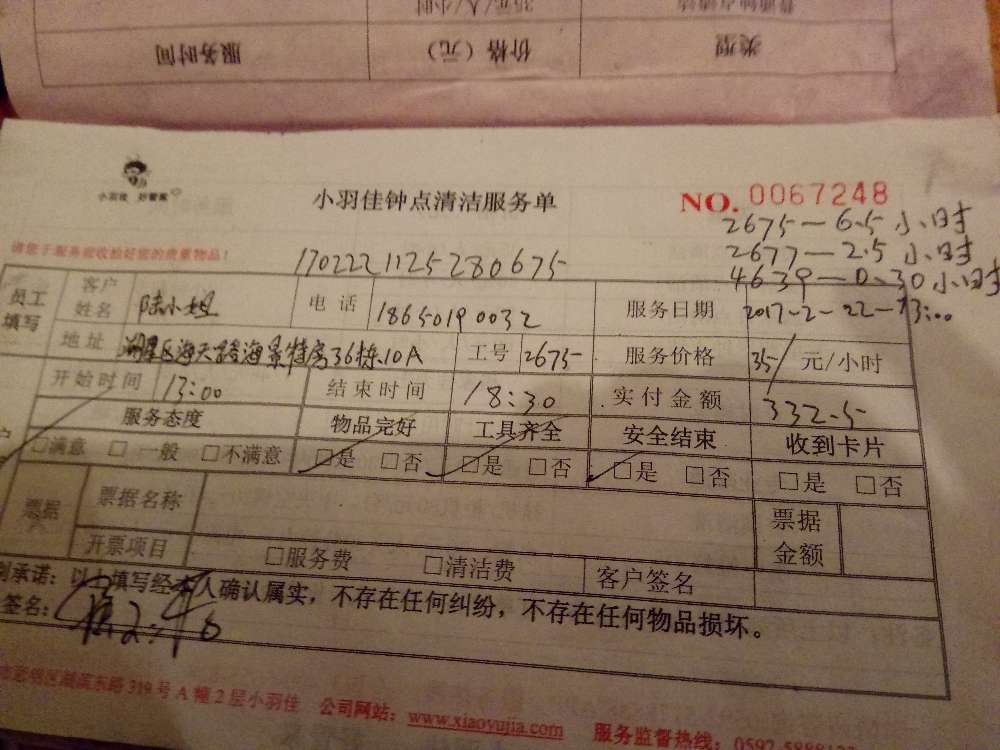 普通钟点清洁 35元/人/小时
类型 价格（元） 服务时间
小羽佳 好管家
小羽佳钟点清洁服务单 NO. 0067248
2675—6.5小时
2677—2.5小时
4639—0.30小时
请您于服务前收拾好您的贵重物品!
1702221125280675
员工填写 客户姓名 陆小姐 电话 18650190032 服务日期 2017-2-22-13:00
地址 海天路海景特房36栋10A 工号 2675 服务价格 35/元/小时
开始时间 13:00 结束时间 18:30 实付金额 332.5
服务态度 物品完好 工具齐全 安全结束 收到卡片
□满意 □一般 □不满意 □是 □否 □是 □否 □是 □否 □是 □否
票据 票据名称 票据金额
开票项目 □服务费 □清洁费 客户签名
承诺：以上填写经本人确认属实，不存在任何纠纷，不存在任何物品损坏。
签名：
东路319号A幢2层小羽佳 公司网站：www.xiaoyujia.com 服务监督热线：0592-5888